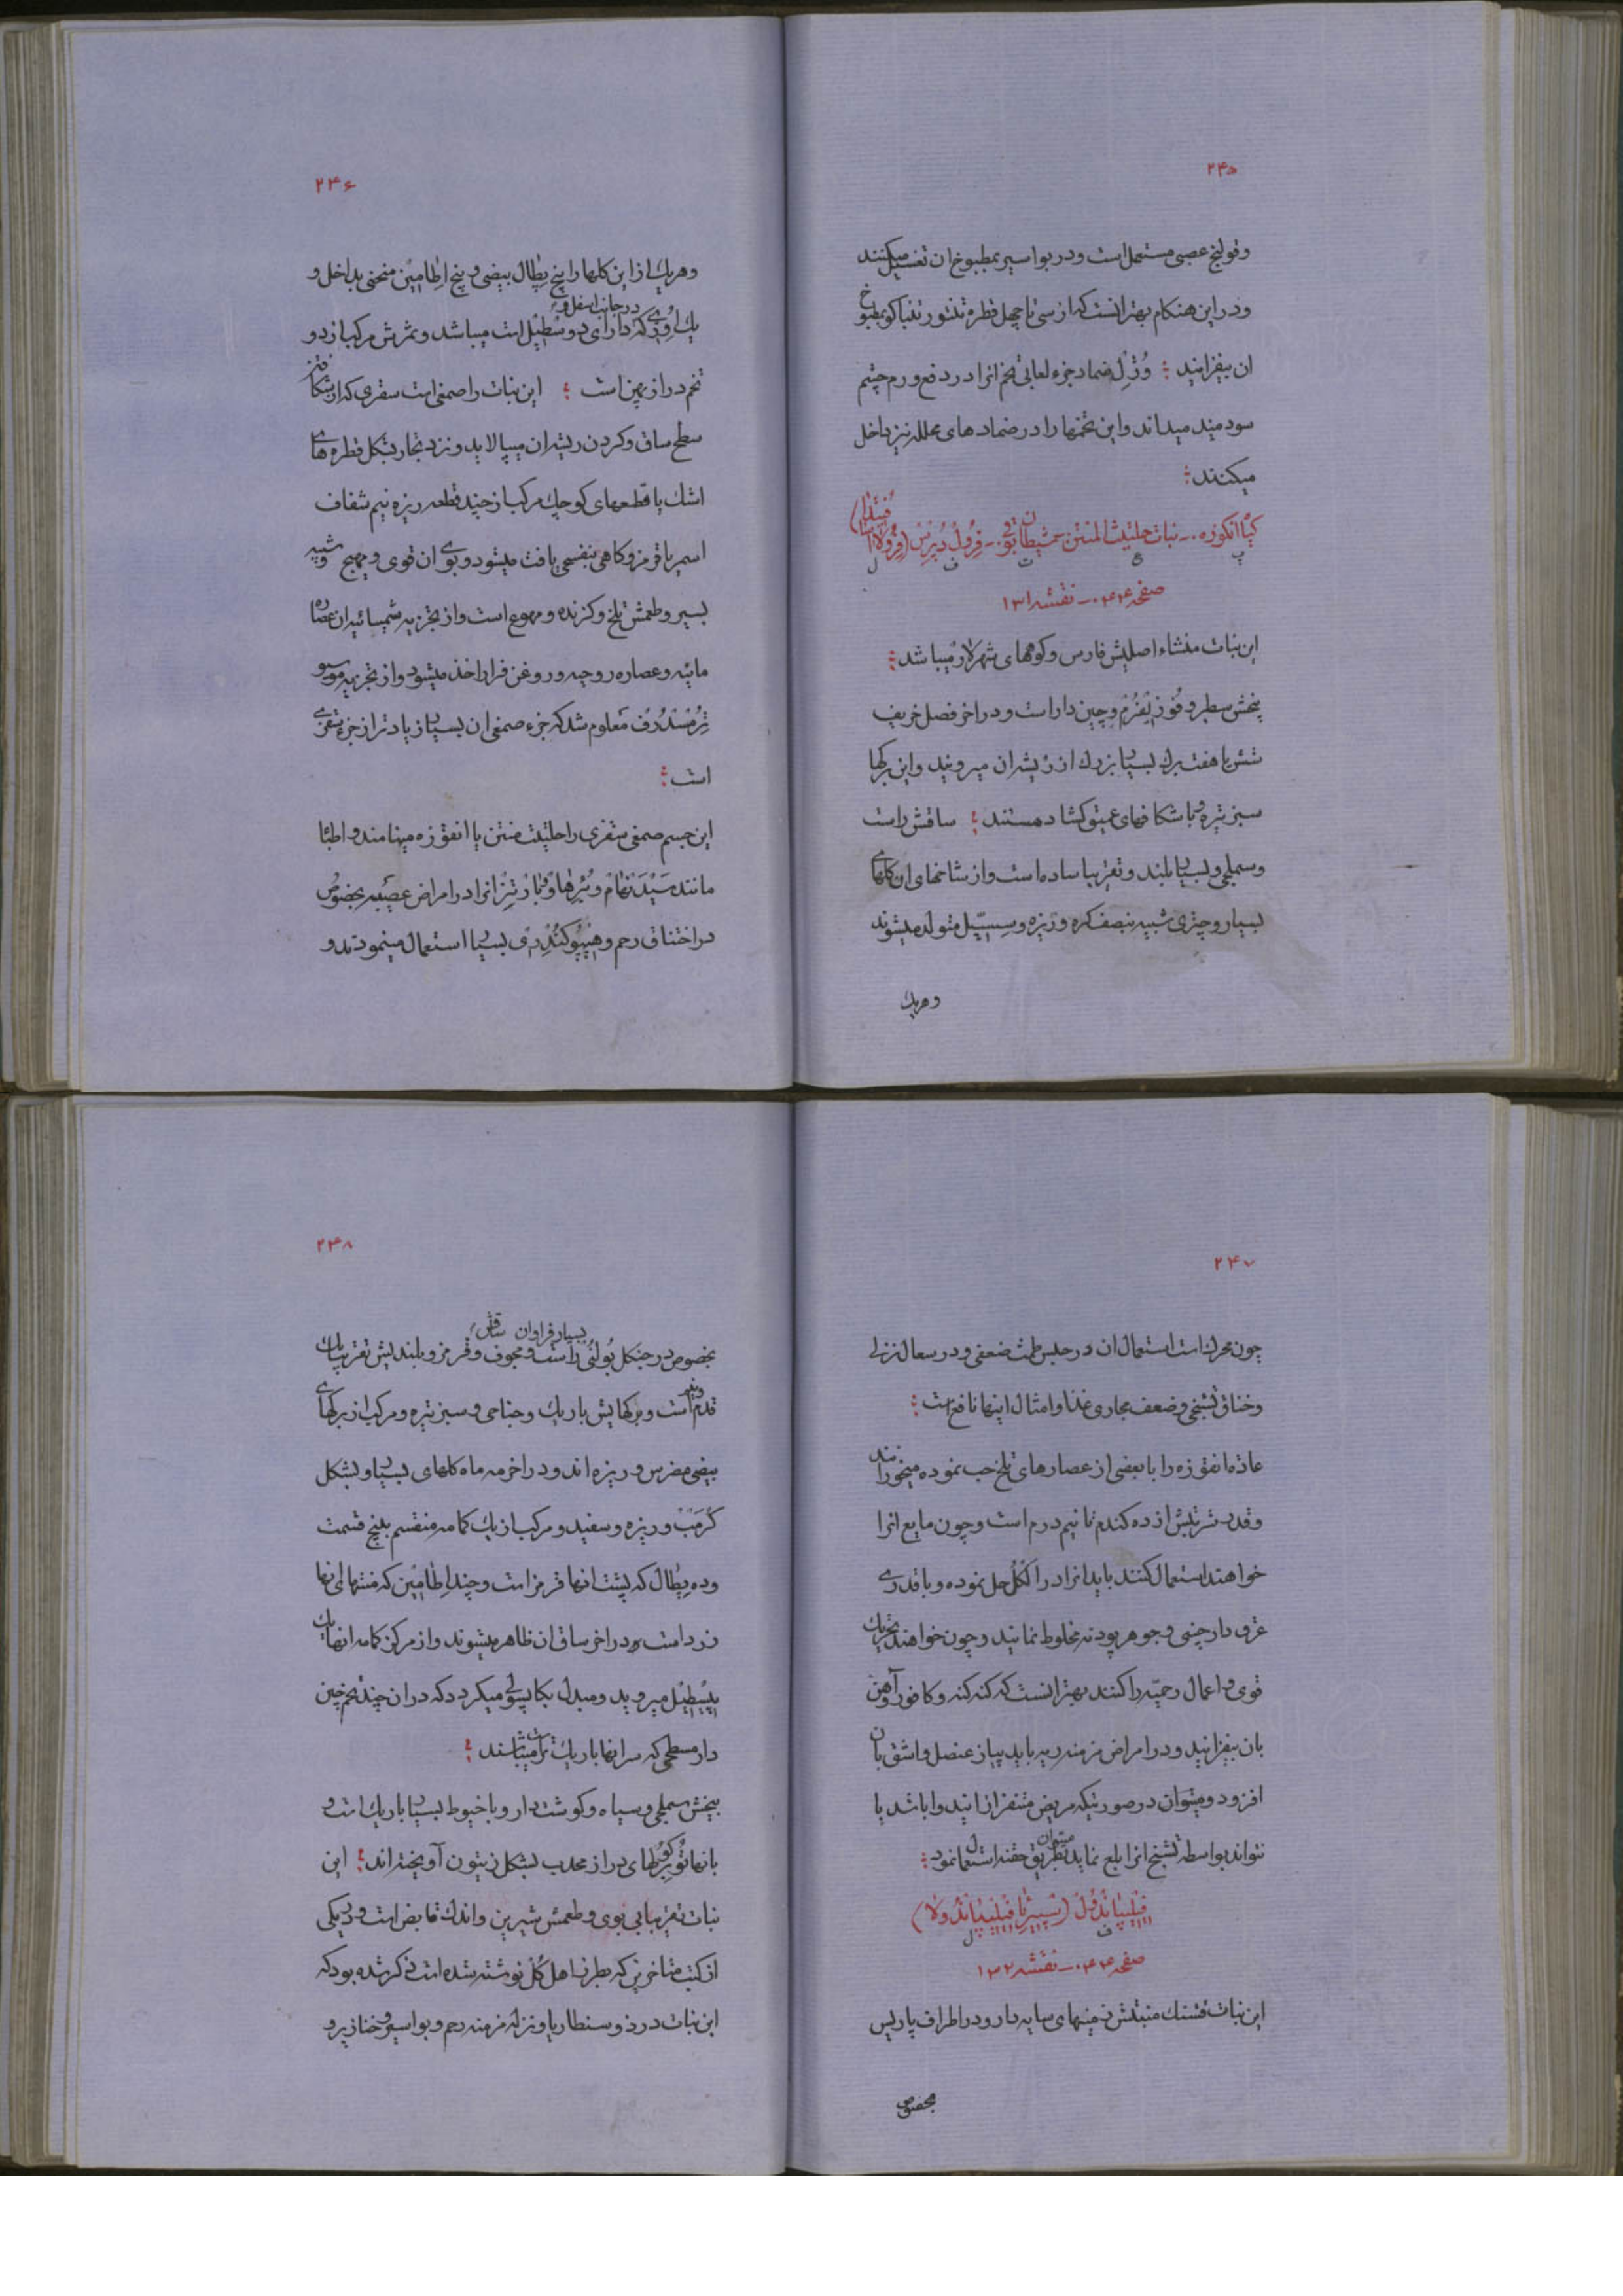 ۲۴۵
وقولنج عصبی مستعمل است ودر بواسیر بمطبوخ ان تغسیل میکنند
ودر این هنکام بهتر انست که از سی تا چهل قطره تنتور تنباکو بمطبوخ
ان بیفزایند ؛ وُدِل ضماد جزء لعابی تخم انرا در دفع ورم چشم
سودمند میداند واین تخمها را در ضمادهای محلله نیز داخل
میکنند ؛
کیاه انکوزه ـ نبات حلتیث المنتن ـ شیطان تو ـ فرول پرس (فرولا اسافتیدا)
پ ع ت ف ل
صفحه ۴۴۰ ـ نقشه ۱۳۱
این نبات منشاء اصلیش فارس وکوههای شهر لار میباشد ؛
بیخش سطبر وفوزیفرم وچین دار است ودر اخر فصل خریف
شش یا هفت برک بسیار بزرك از ریشه ان میروید واین برکها
سبز تیره وبا شکافهای عمیق کشاده هستند ؛ ساقش راست
وسملی وبسیار بلند وتقریبا ساده است واز شاخهای ان کلهای
بسیار وچتری شبیه بنصف کره وریزه وسسیل متولد میشوند
وهریك
۲۴۶
وهریك از این کلها را پنج پطال بیضی وپنج اطامین منحنی بداخل و
یك اوری که در جانب اسفل وی دارای دو سطیل است میباشد وثمرش مرکب از دو
تخم دراز پهن است ؛ این نبات را صمغی است سقزی که از شکافتن
سطح ساق وکردن ریشه ان میپالاید ونزد تجار بشکل قطره های
اشك یا قطعهای کوچك مرکب از چند قطعه ریزه نیم شفاف
اسمر یا قرمز وکاهی بنفسجی یافت میشود وبوی ان قوی ومهیج وشبیه
بسیر وطعمش تلخ وکزنده ومهوع است واز تجزیه شیمیائیه ان عصاره
مائیه وعصاره روحیه وروغن فرار اخذ میشود واز تجزیه موسیو
ترمسدرف معلوم شد که جزء صمغی ان بسیار زیادتر از جزء سقزی
است ؛
این جسم صمغی سقزی را حلتیث منتن یا انقوزه مینامند واطبا
مانند سیدنهام وبرهاو وقبارتیز انرا در امراض عصبیه بخصوص
در اختناق رحم وهیپوکندری بسیار استعمال مینمودند و
۲۴۷
چون محرك است استعمال ان در حبس طمث ضعفی ودر سعال نزلی
وخناق تشنجی وضعف مجاری غذا وامثال اینها نافع است ؛
عادة انقوزه را با بعضی از عصارهای تلخ حب نموده میخورانند
وقدر شربتش از ده کندم تا نیم درم است وچون مایع انرا
خواهند استعمال کنند باید انرا در الکل حل نموده وبا قدری
عرق دارچینی وجوهر پودنه مخلوط نمایند وچون خواهند تحریك
قوی در اعمال رحمیه را کنند بهتر انست که کنه کنه وکافور وآهن
بان بیفزایند ودر امراض مزمنه ریه باید پیاز عنصل واشق بان
افزود ومیتوان در صورتیکه مریض متنفر از ان یا باشد یا
نتواند بواسطه تشنج انرا بلع نماید بطریق حقنه استعمال نمود ؛
فیلیپاندول (سپیرئا فیلیپاندولا)
ف ل
صفحه ۴۴۰ ـ نقشه ۱۳۲
این نبات قشنك منبتش زمینهای سایه دار ودر اطراف پاریس
بخصوص
۲۴۸
بخصوص در جنکل بولنی بسیار فراوان ساقش راست ومجوف وقرمز وبلندیش تقریبا یك
قدم ونیم است وبرکهایش باریك وجناحی وسبز تیره ومرکب از برکهای
بیضی مضرس وریزه اند ودر اخر مه ماه کلهای بسیار وبشکل
کرمب وریزه وسفید ومرکب از یك کامه منقسم به پنج قسمت
وده پطال که پشت انها قرمز است وچند اطامین که منتهای انها
زرد است در اخر ساق ان ظاهر میشوند واز مرکز کامه انها یك
پیسطیل میروید ومبدل بکاپسولی میکردد که در ان چند تخم چین
دار مسطحی که سر انها باریك تر است میباشند ؛
بیخش سملی وسیاه وکوشت دار وبا خیوط بسیار باریك است و
بانها توبرکولهای دراز محدب بشکل زیتون آویخته اند ؛ این
نبات تقریبا بی بوی وطعمش شیرین واندك قابض است ودر یکی
از کتب متاخرین که بطرز اهل کل نوشته شده است ذکر شده بود که
این نبات در ذوسنطاریا ونزله مزمنه رحم وبواسیر وخنازیر و